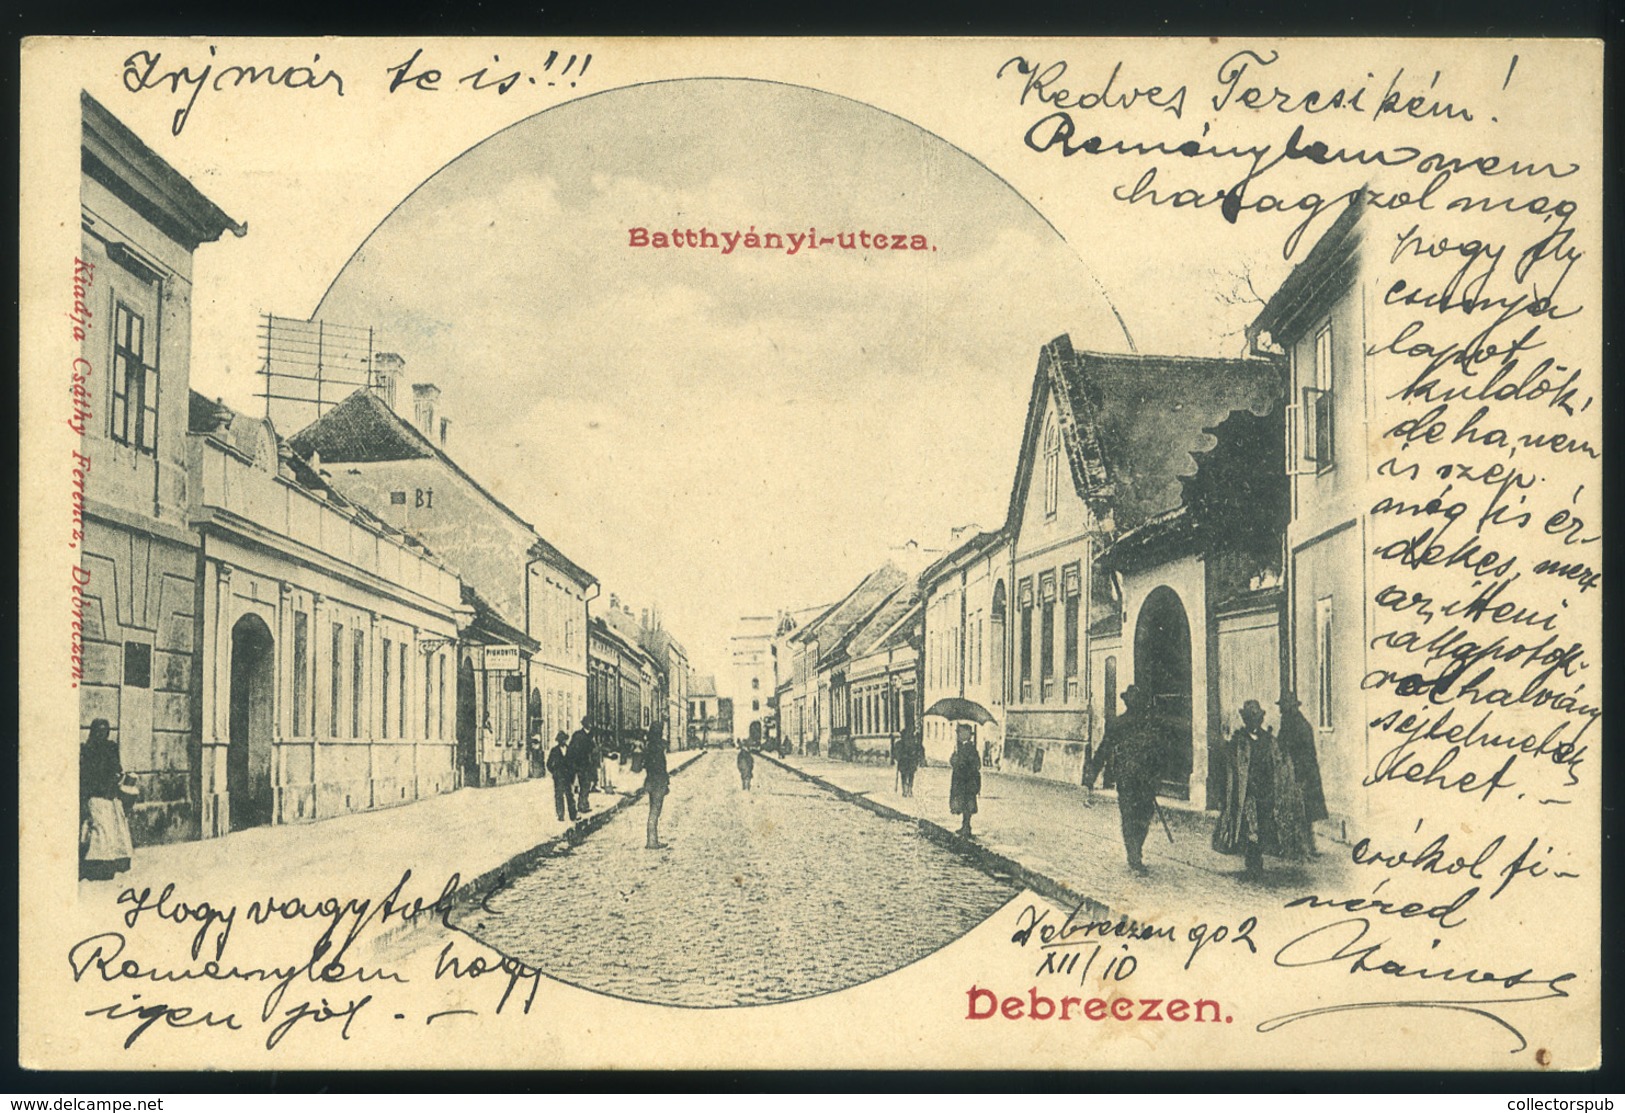 Irj már te is!!!
Kedves Tercsikém!
Reménylem nem
haragszol meg
hogy ily
csunya
lapot
küldök,
de ha nem
is szép
még is ér-
dekes, mert
az itteni
állapotok-
ról halvány
sejtelmetek
lehet. –
csókol fi-
véred
Batthyányi-utcza.
Kiadja Csáthy Ferencz, Debreczen.
BÍ
Hogy vagytok?
Reménylem hogy
igen jól. –
Debreczen 902
XII/10
Debreczen.
collectorspub